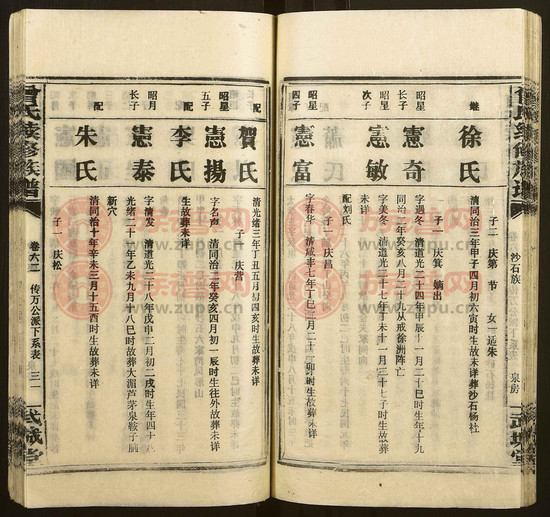 继
徐氏
清同治三年甲子四月初六寅时生故未详葬沙石杨社
子二 庆第 节 女一适朱
昭星
长子
憲奇
字遇冬 清道光二十四年甲辰十一月二十巳时生年十九
同治二年癸亥八月二十九从戎徐洲阵亡
子一 庆箕 嫡出
昭星
次子
憲敏
字美冬 清道光二十七年丁未十一月三十七子时生故葬
未详
配刘氏
子一 庆昌
昭星
四子
憲富
字春华 清咸丰七年丁巳三月二十 卯时生故葬未详
沙石族
泉房
配
賀氏
清光绪三年丁丑五月初四亥时生故葬未详
子一 庆营
昭星
五子
憲揚
字名声 清同治二年癸亥四月初一辰时生往外故葬未详
配
李氏
生故葬未详
昭月
长子
憲泰
字清发 清道光二十八年戊申二月初二戌时生年四十
光绪二十一年乙未九月十八巳时故葬大湄芦茅泉鞍子脑
新穴
配
朱氏
清同治十年辛未三月十五酉时生故葬未详
子一 庆松
曾氏续修族谱
卷六二
传万公派下系表
三一
武城堂
族谱网
www.zupu.cn